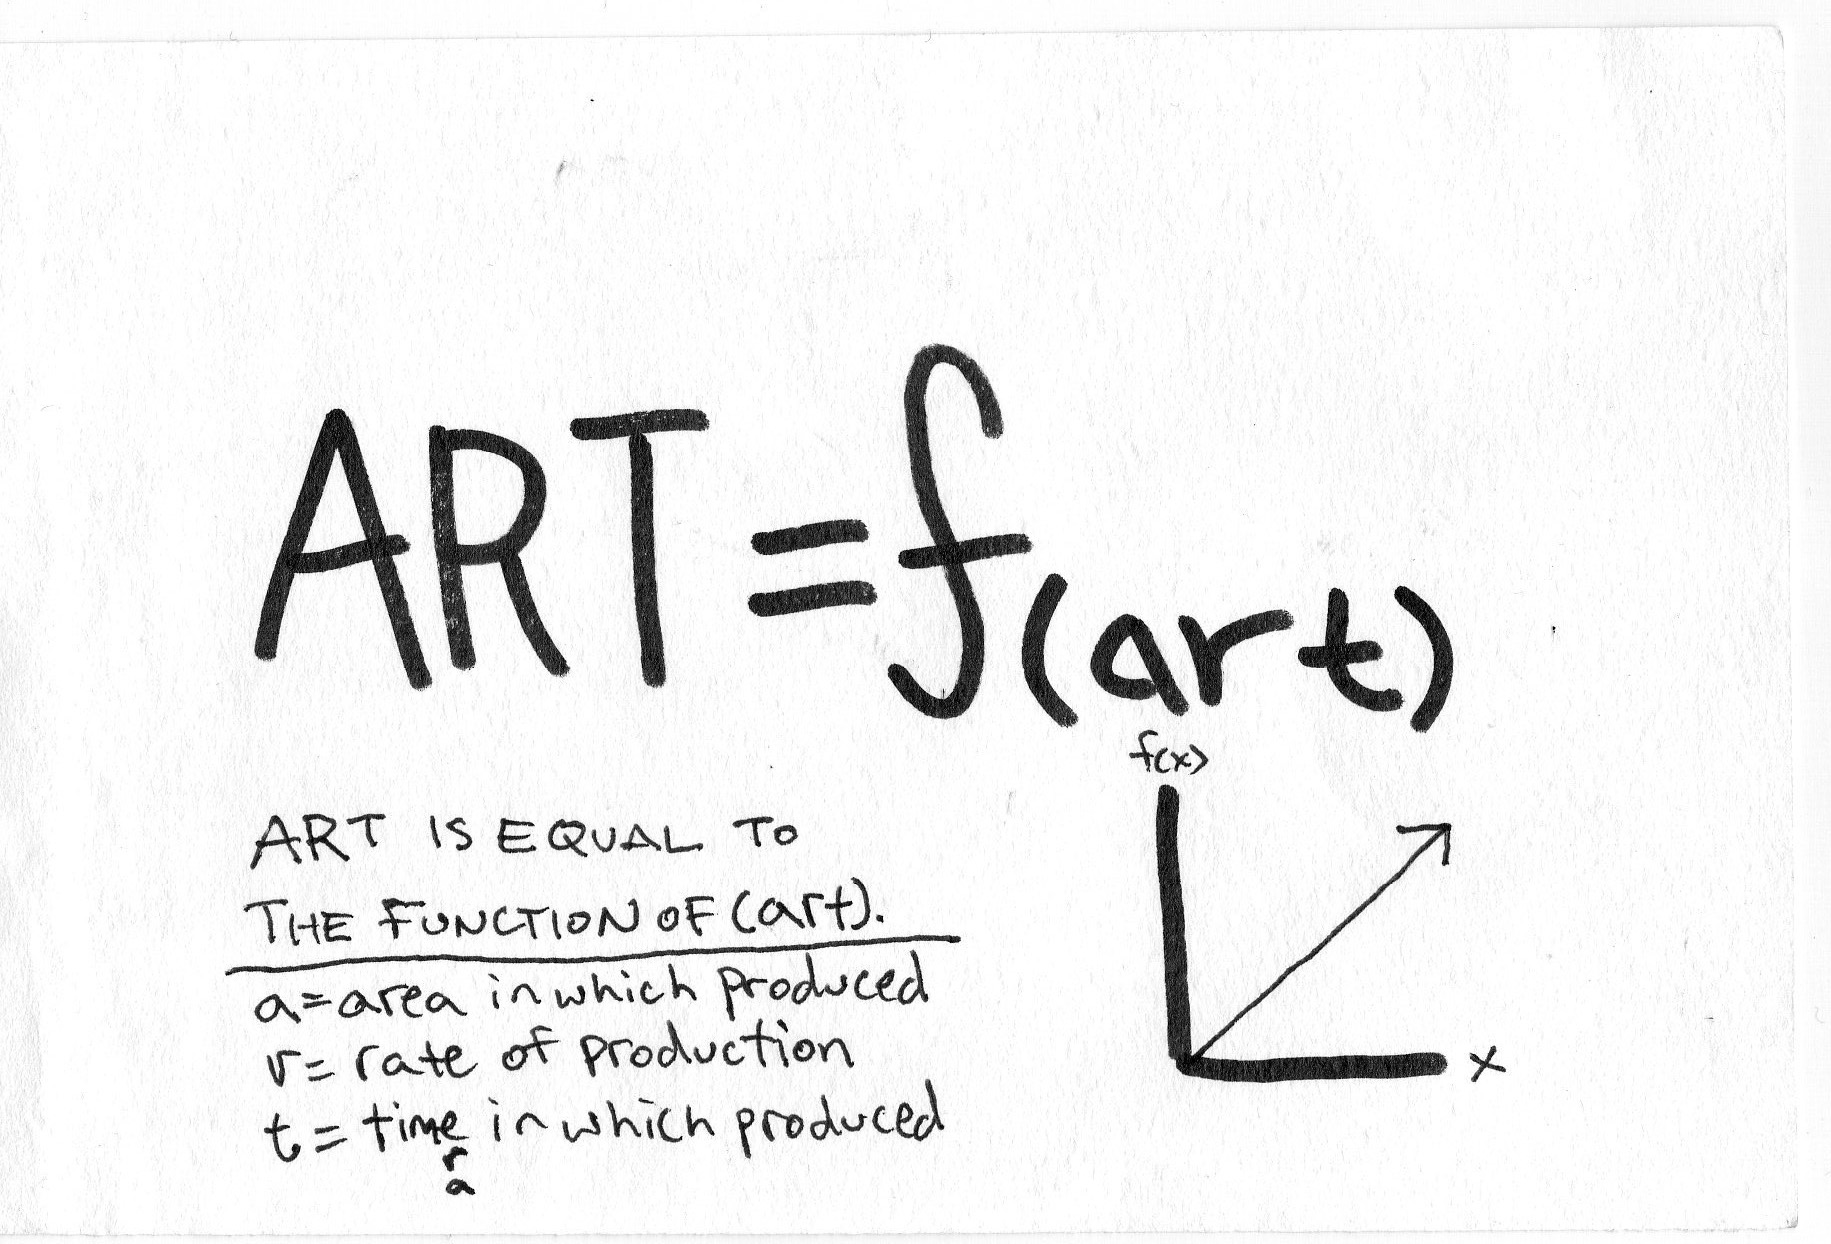 ART = f(art)
ART IS EQUAL TO
THE FUNCTION OF (art).
a = area in which produced
r = rate of production
t = time in which produced
r
a
f(x)
x